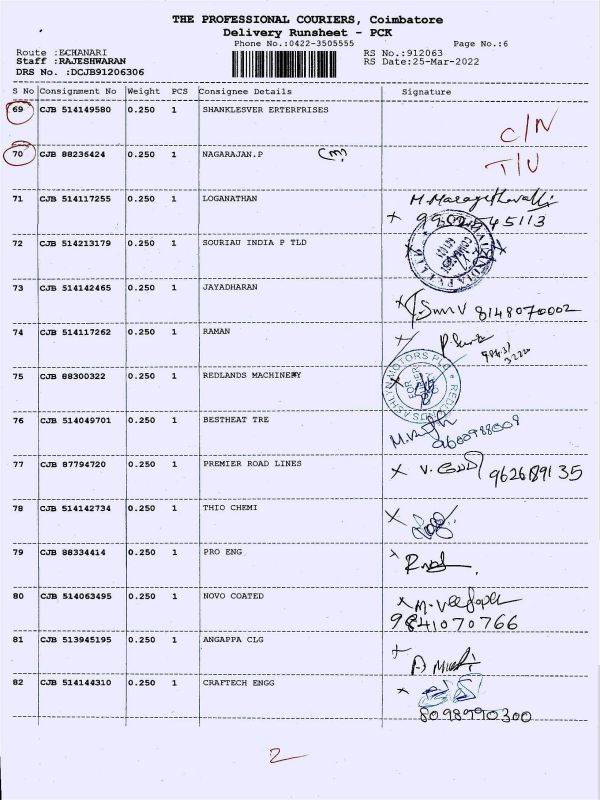 THE PROFESSIONAL COURIERS, Coimbatore
Delivery Runsheet - PCK
Phone No.:0422-3505555 Page No.:6
Route :ECHANARI RS No.:912063
Staff :RAJESHWARAN RS Date:25-Mar-2022
DRS No. :DCJB91206306
S No Consignment No Weight PCS Consignee Details Signature
69 CJB 514149580 0.250 1 SHANKLESVER ERTERPRISES C/N
70 CJB 88236424 0.250 1 NAGARAJAN.P T/U
71 CJB 514117255 0.250 1 LOGANATHAN
72 CJB 514213179 0.250 1 SOURIAU INDIA P TLD
73 CJB 514142465 0.250 1 JAYADHARAN 8148070002
74 CJB 514117262 0.250 1 RAMAN
75 CJB 88300322 0.250 1 REDLANDS MACHINERY
76 CJB 514049701 0.250 1 BESTHEAT TRE
77 CJB 87794720 0.250 1 PREMIER ROAD LINES
78 CJB 514142734 0.250 1 THIO CHEMI
79 CJB 88334414 0.250 1 PRO ENG
80 CJB 514063495 0.250 1 NOVO COATED
9841070766
81 CJB 513945195 0.250 1 ANGAPPA CLG
82 CJB 514144310 0.250 1 CRAFTECH ENGG
8098990300
2